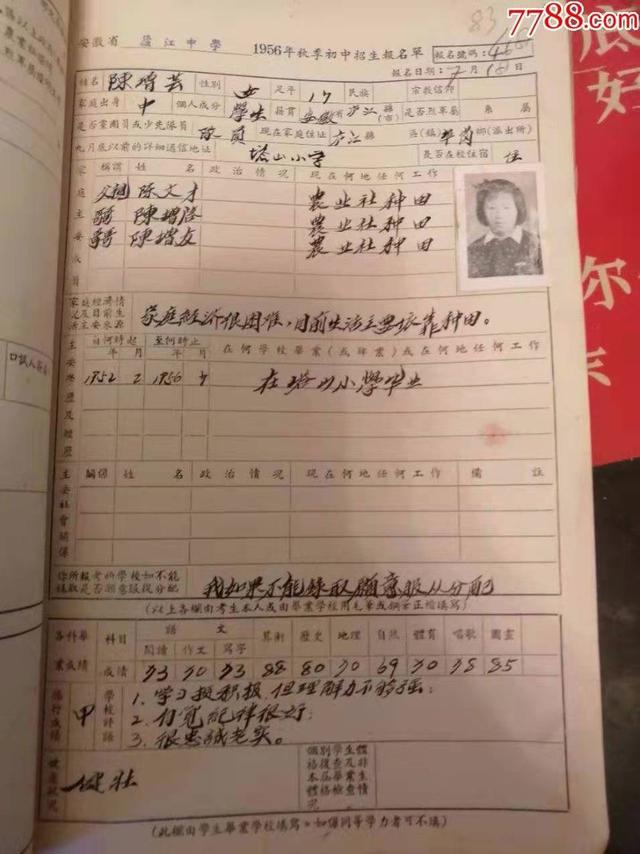 7788.com
83
安徽省 廬江中學 1956年秋季初中招生報名單 報名號碼:
報名日期: 7月18日
姓名 陳增芸 性別 女 足平 17 民族 宗教信仰
家庭出身 中 個人成分 學生 籍貫 安徽 省 庐江 縣(市) 是否烈軍屬 屬
是否黨團員或少先隊員 队員 現在家庭住址 庐江縣 區(鎮) 鄉(派出所)
九月底以前的詳細通信地址 塔山小学 是否在校住宿 住
家庭主要成員 稱謂 姓名 政治情況 現在何地任何工作
父親 陈文才 农业社种田
陳增啓 农业社种田
陳增友 农业社种田
家庭經濟情況及目前生活主要來源 家庭經济很困难,目前生活主要依靠种田。
主要學歷及經歷 自何時起 年 月 至何時止 年 月 在何學校畢業(或肄業)或在何地任何工作
1952 2 1956 7 在塔山小學毕业
主要社會關係 關係 姓名 政治情況 現在何地任何工作 備註
你所報考的學校如不能錄取是否願意服從分配 我如果不能錄取願意服从分配
(以上各欄由考生本人或由畢業學校用毛筆或鋼筆正楷填寫)
各科畢業成績 科目 語文 閱讀 作文 寫字 算術 歷史 地理 自然 體育 唱歌 圖畫
成績 73 70 73 88 80 70 69 70 78 85
操行成績 甲 學校評語 1. 学习较积极 但理解力不够强;
2. 纪律很好;
3. 很忠誠老实。
健康狀況 健壯 個別學生體格復查及非本屆畢業生體格檢查情況
(此欄由學生畢業學校填寫。如係同等學力者可不填)
口試人簽名
底
好
尔